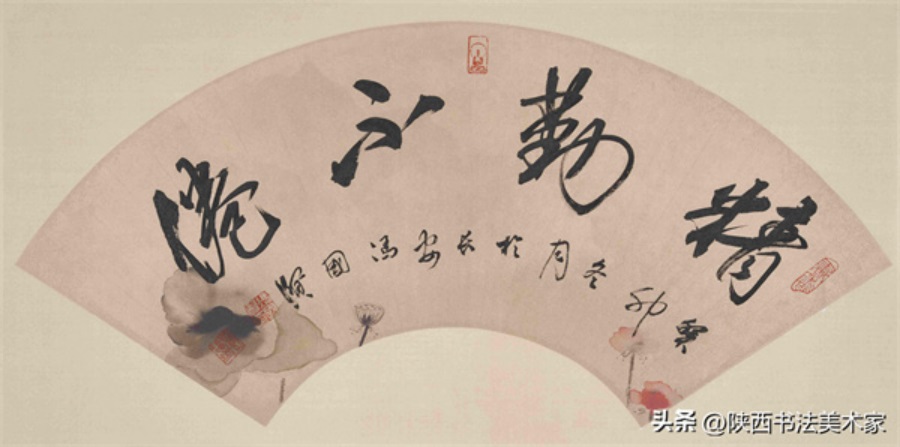 精勤不倦
癸卯冬月於长安冯國
头条 @陕西书法美术家